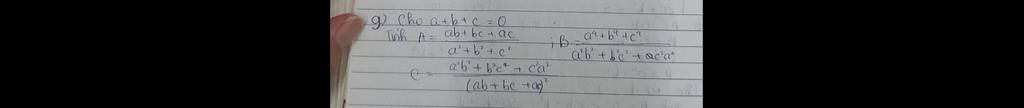 g) Cho a+b+c=0
Tính A = ab+bc+ac / a²+b²+c² ; B = a⁴+b⁴+c⁴ / a²b²+b²c²+c²a²
C = a²b²+b²c²+c²a² / (ab+bc+ac)²